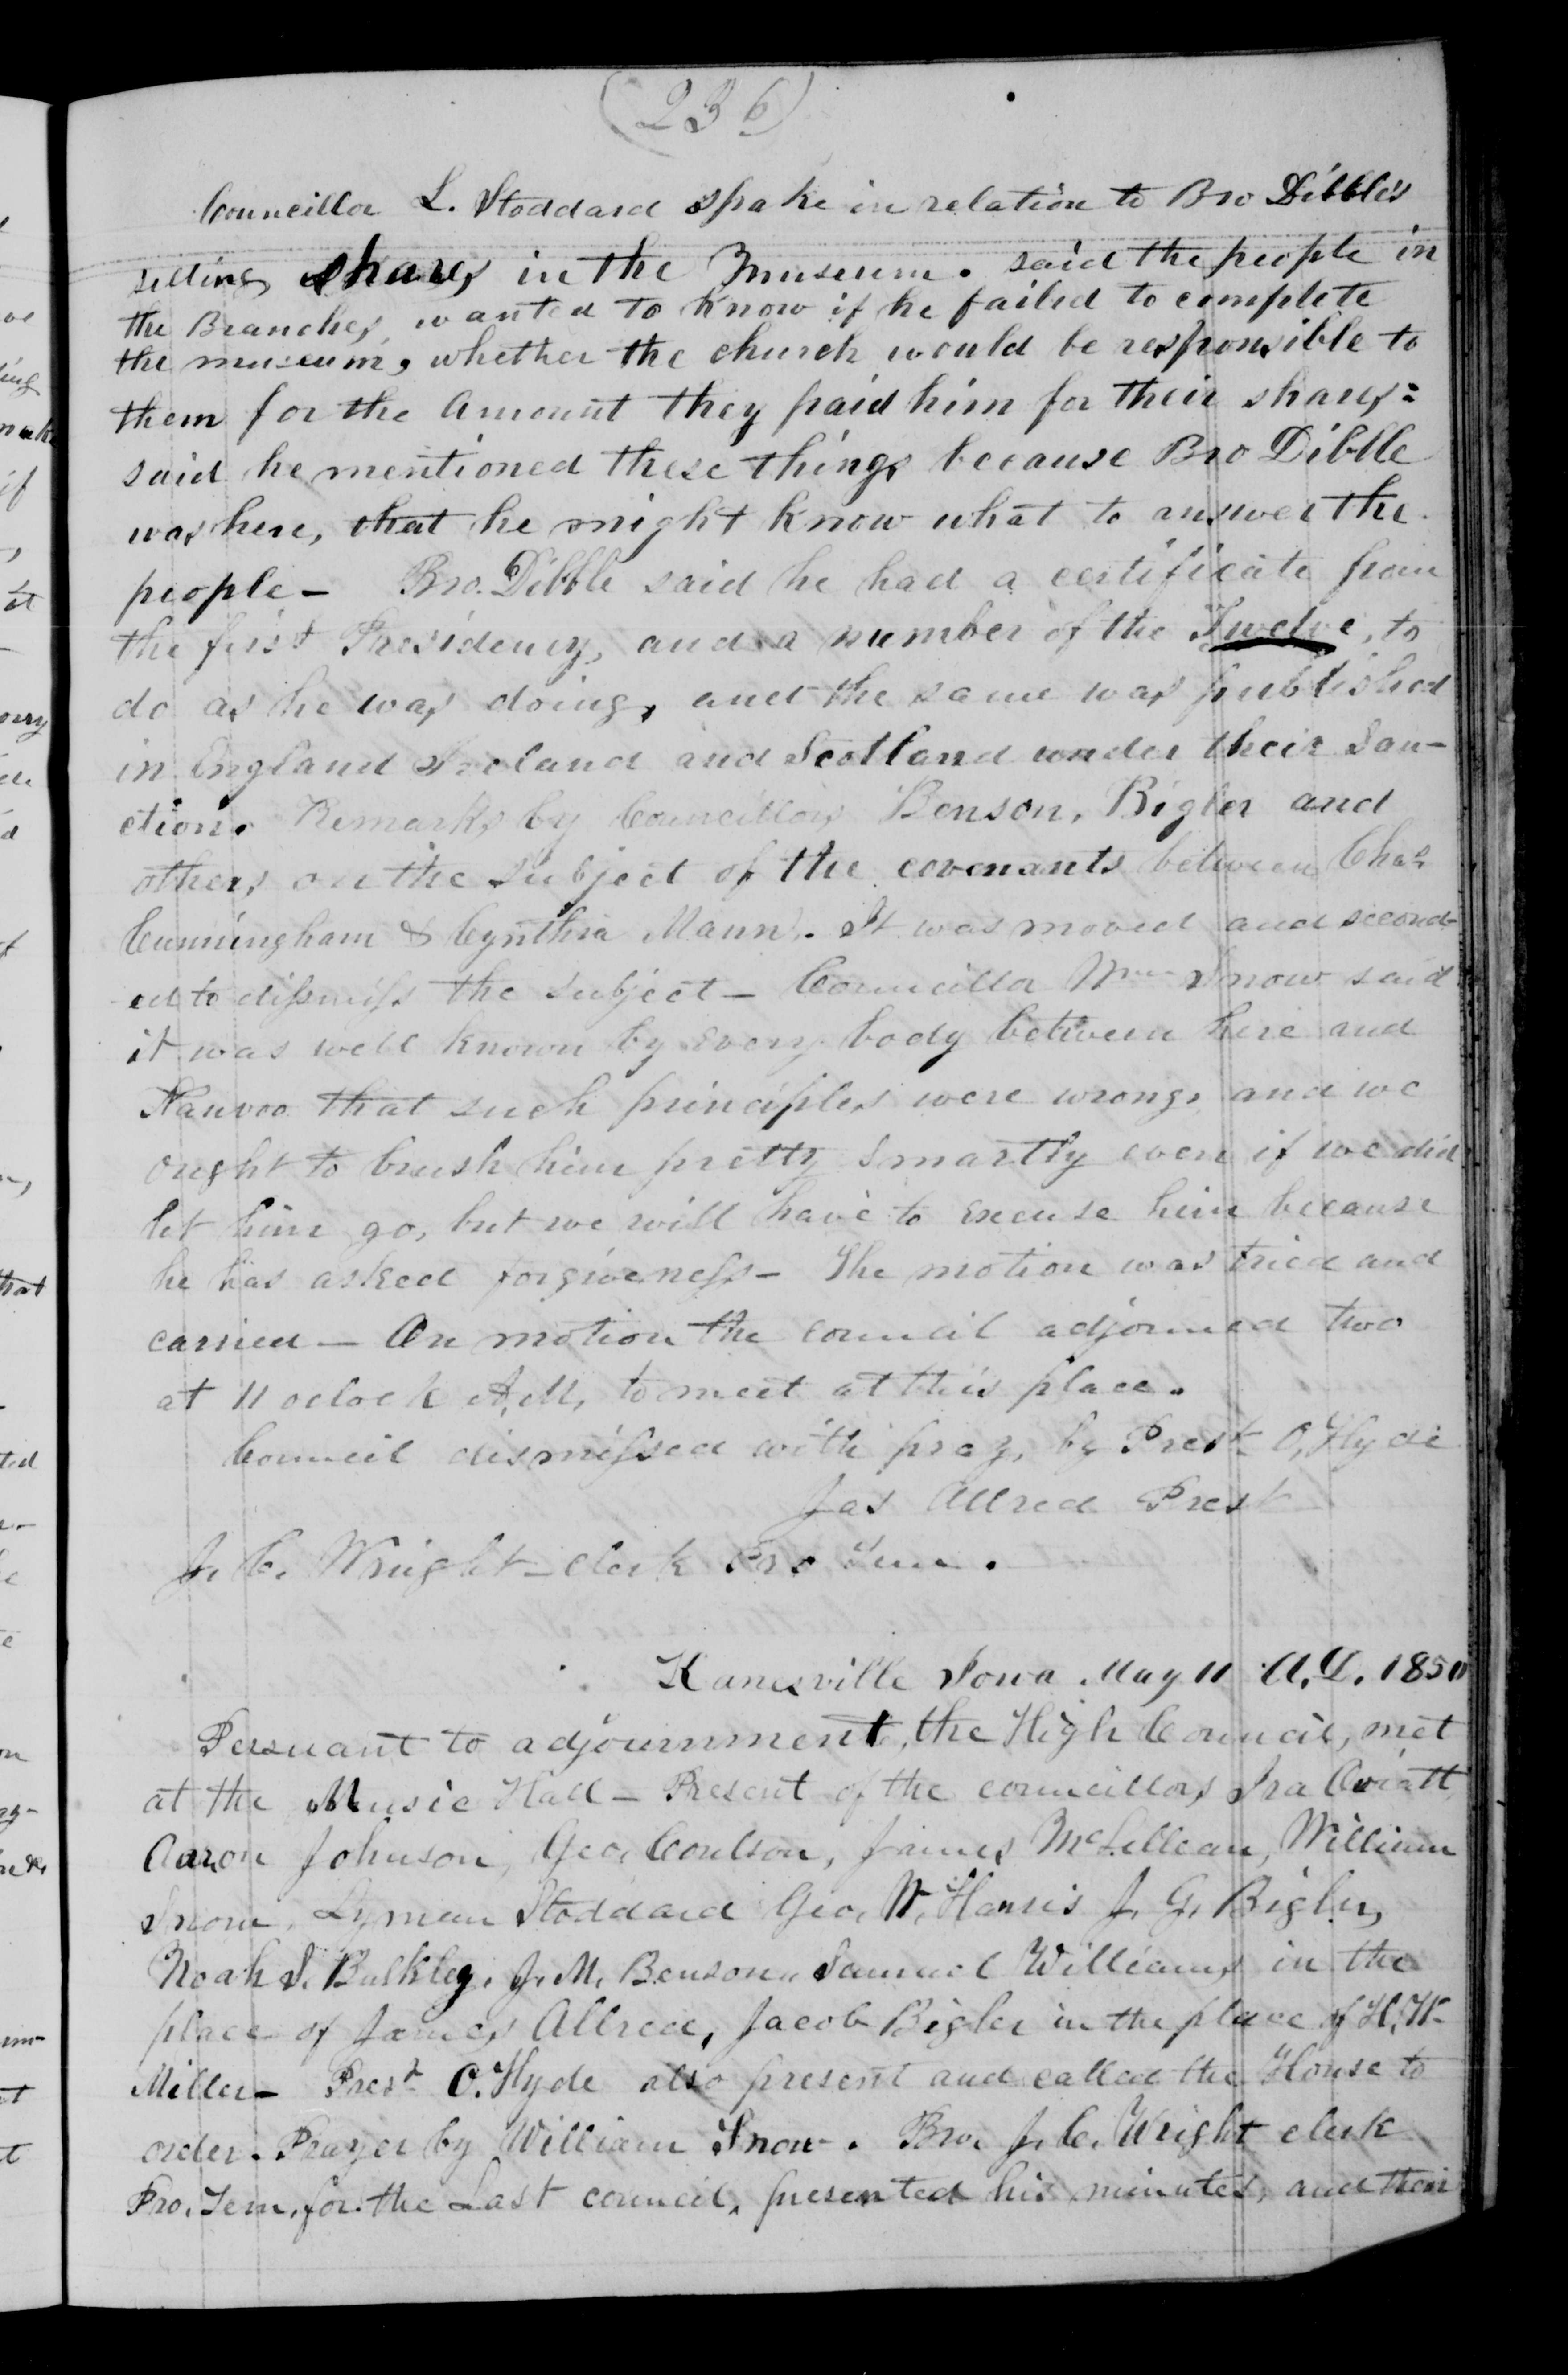 (236)
Councillor L. Stoddard spake in relation to Bro Dibble's
selling shares in the Museum. said the people in
the Branches, wanted to know if he failed to complete
the museum, whether the church would be responsible to
them for the amount they paid him for their shares:
said he mentioned these things because Bro Dibble
was here, that he might know what to answer the
people - Bro. Dibble said he had a certificate from
the first Presidency, and a number of the Twelve, to
do as he was doing, and the same was published
in England Ireland and Scotland under their San-
ction. Remarks by Councillors Benson, Bigler and
others on the subject of the covenants between Chas
Cunningham & Cynthia Mann. It was moved and second-
ed to dismiss the subject - Councillor Wm Snow said
it was well known by every body between here and
Nauvoo that such principles were wrong, and we
ought to brush him pretty smartly even if we did
let him go, but we will have to excuse him because
he has asked forgiveness - The motion was tried and
carried - On motion the council adjourned two
at 11 oclock A.M. to meet at this place.
Council dismissed with pray, by Prest O. Hyde
Jas Allred Prest
J. C. Wright - Clerk Pro Tem.
Kanesville Iowa May 11 A.D. 1850
Persuant to adjournment, the High Council, met
at the Music Hall - Present of the councillors Ira Oviatt
Aaron Johnson, Geo. Coulson, James McLellean, William
Snow, Lyman Stoddard Geo. W. Harris J. G. Bigler,
Noah S. Bulkley, J. M. Benson, Samuel Williams in the
place of James Allred, Jacob Bigler in the place of H. W.
Miller - Prest O. Hyde also present and called the House to
order. Prayer by William Snow. Bro. J. C. Wright clerk
Pro. Tem. for the Last council, presented his minutes, and their